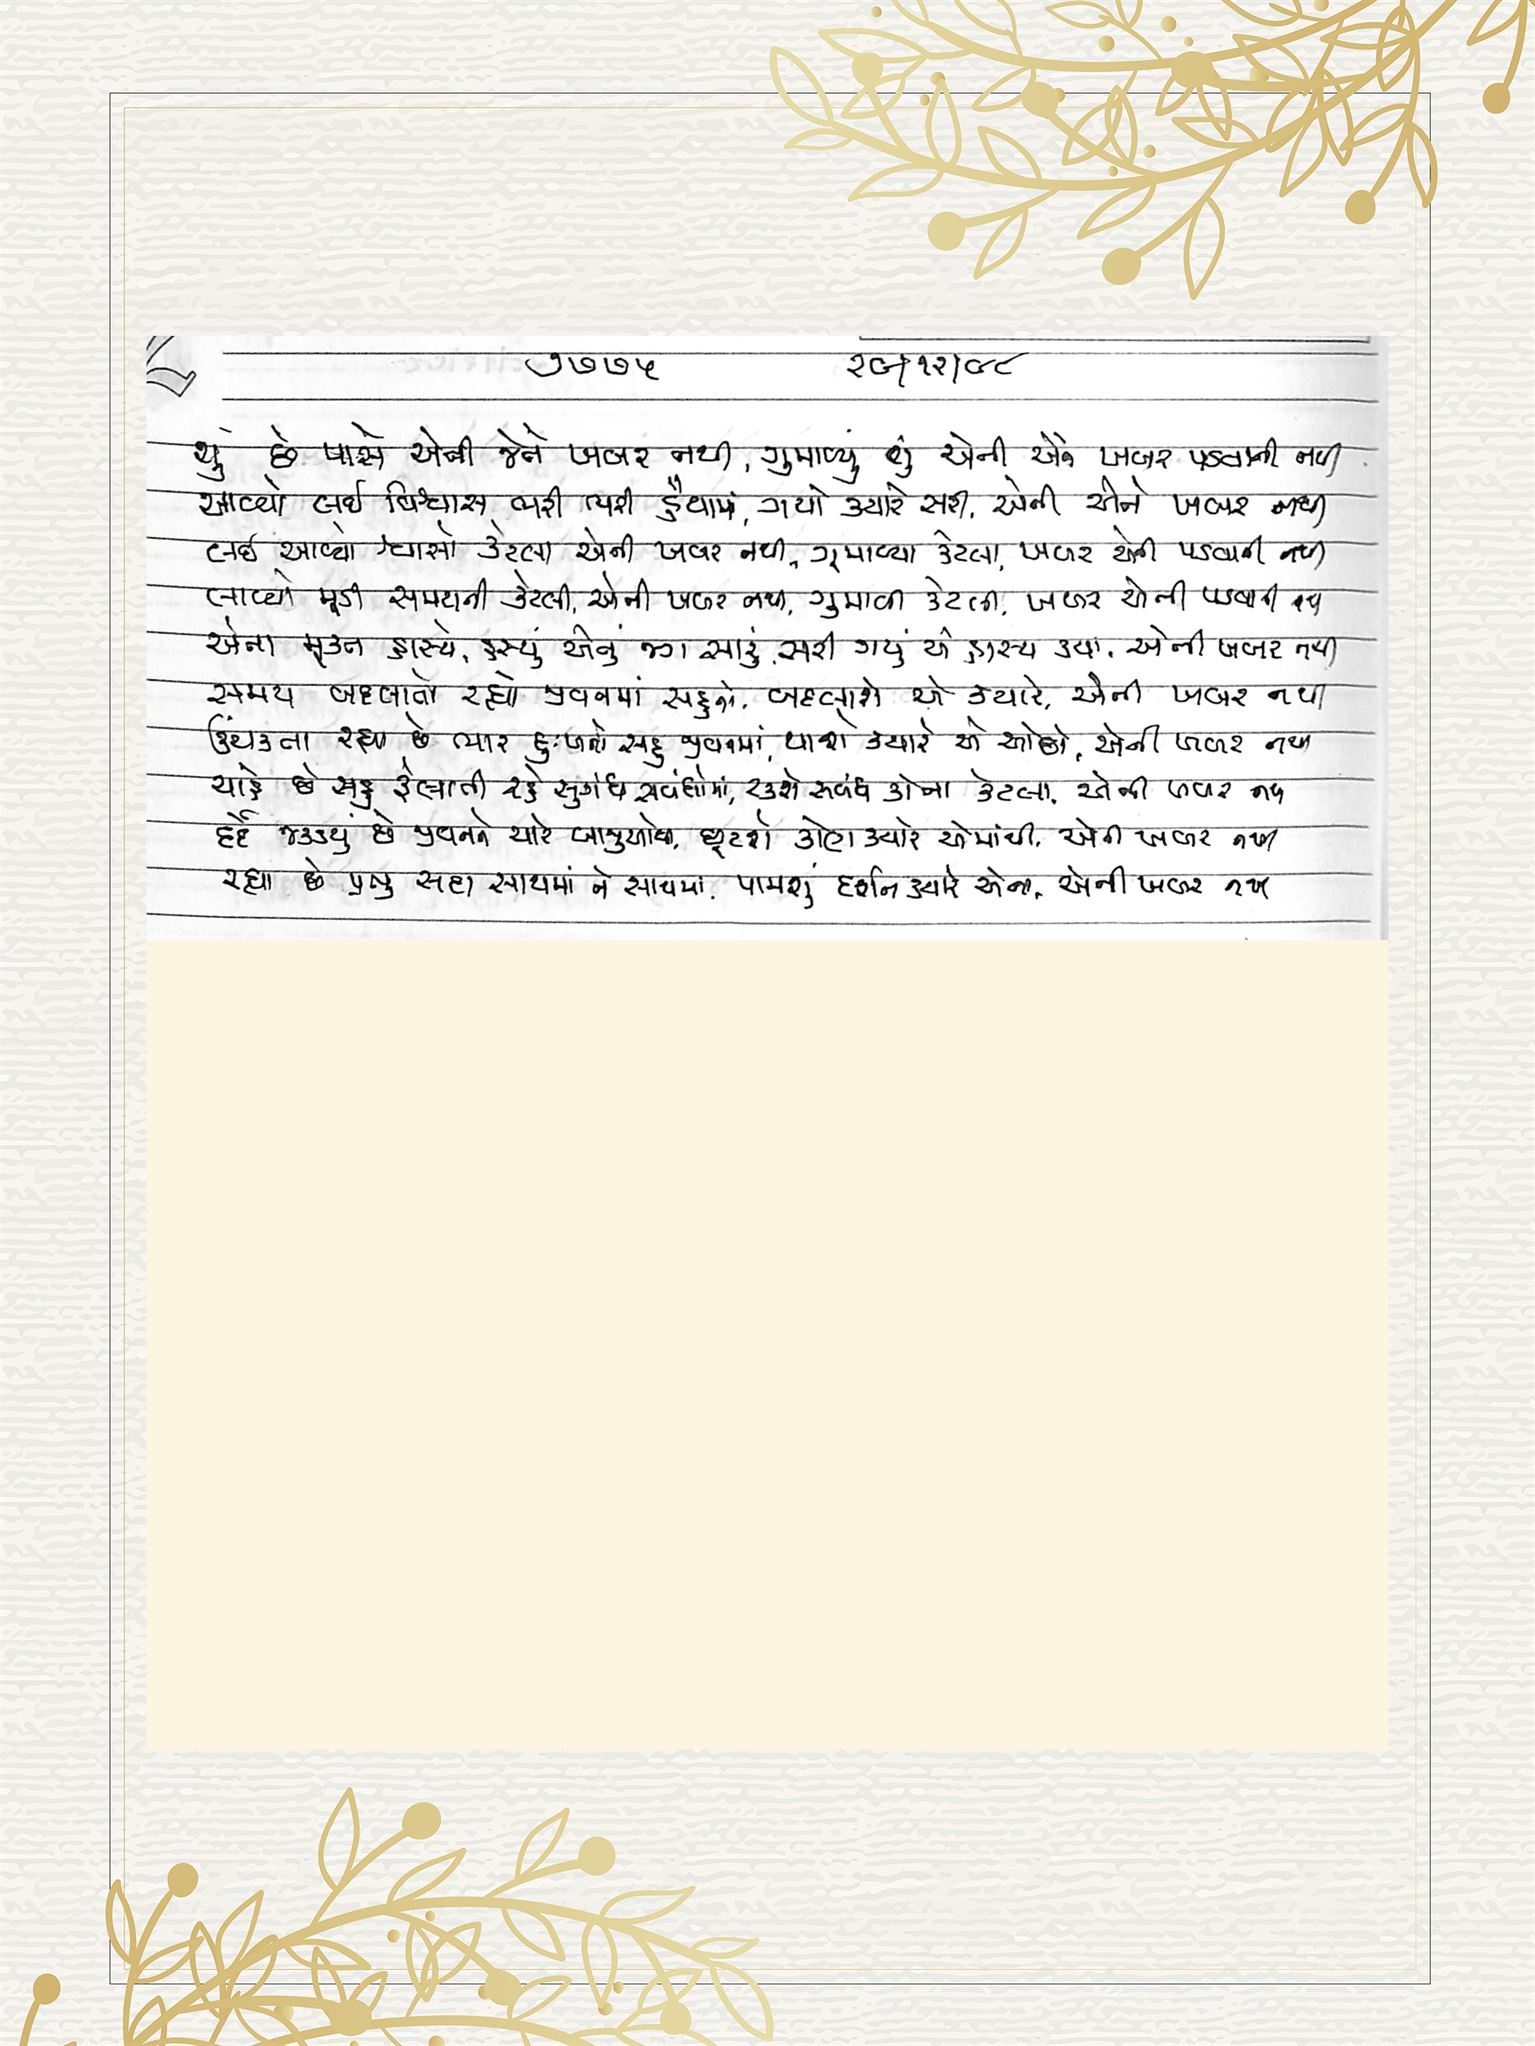 ૭૭૭૫ ૨૯/૧૨/૯૮
શું છે પાસે એની જેને ખબર નથી, ગુમાવ્યું શું એની એને ખબર પડવાની નથી
આવ્યો લઈ વિશ્વાસ ભરી ભરી હૈયામાં, ગયો ક્યારે સરી, એની એને ખબર નથી
લઈ આવ્યો શ્વાસો કેટલા એની ખબર નથી, ગુમાવ્યા કેટલા, ખબર એની પડવાની નથી
લાવ્યો મૂડી સમયની કેટલી, એની ખબર નથી, ગુમાવી કેટલી, ખબર એની પડવાની નથી
એના મૂક્ત હાસ્યે, હસ્યું એનું જગ સારું, સરી ગયું એ હાસ્ય ક્યાં, એની ખબર નથી
સમય બદલાતો રહ્યો જીવનમાં સહુનો, બદલાશે એ ક્યારે, એની ખબર નથી
ઊંચકતા રહ્યા છે ભાર દુઃખનો સહુ જીવનમાં, થાશે ક્યારે એ ઓછો, એની ખબર નથી
ચાહે છે સહુ ફેલાતી રહે સુગંધ સબંધોમાં, ટકશે સબંધ કોના કેટલા, એની ખબર નથી
દર્દે જકડયું છે જીવનને ચારે બાજુઓથી, છૂટશે કોણ ક્યારે એમાંથી, એની ખબર નથી
રહ્યા છે પ્રભુ સદા સાથમાં ને સાથમાં, પામશું દર્શન ક્યારે એના, એની ખબર નથી